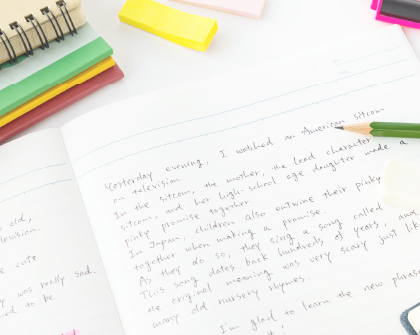 old,
television.
cute
was really sad.
to be.
Yesterday evening, I watched an American sitcom
on television.
In the sitcom, the mother, the lead character
sitcom, and her high-school age daughter made a
pinky promise together.
In Japan, children also entwine their pinky
together when making a promise.
As they do so, they sing a song called
This song dates back hundreds of years, and
the original meaning was very scary just like
many old nursery rhymes.
I'm glad to learn the new phrase